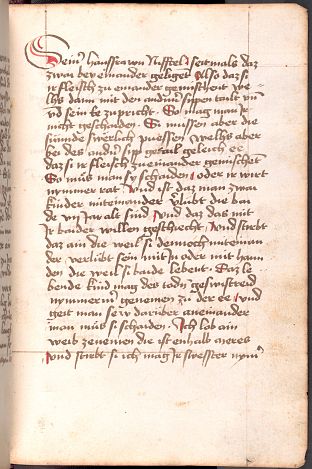 Sein hausfrawn Nifftel seitmals daz
zwai bey einander geligent Also daz si
ir fleisch zu einander gemischt We
lhs dann mit den andern sippen tailt vn
vd sein ee zupricht So mag man si
nicht geschaiden Si muessen aber die
sunde swerlich puessen Welhs aber
bei des andern sipp gelail geleich ee
daz si ir fleisch zueinander gemischet
So mus man sy schaiden oder er wirt
nymmer rat Vnd ist daz man zwai
kinder miteinander verlubt die bai
de vn Jm alt sind Vnd daz das mit
Jr baider willen geschiecht Vnd stirbt
daz ain die weil si dennoch miteinan
der verlubt sein mit su oder mit hann
den die weil si baide lebent Daz le
bende kind mag des todn geswistreid
nymmermer genemen zu der ee Vnd
geit man sew darüber aneinander
man mus si schaiden Ich lob ain
weib zenemen die ist enhalb meres
Vnd stirbt si ich mag ir swesster nym